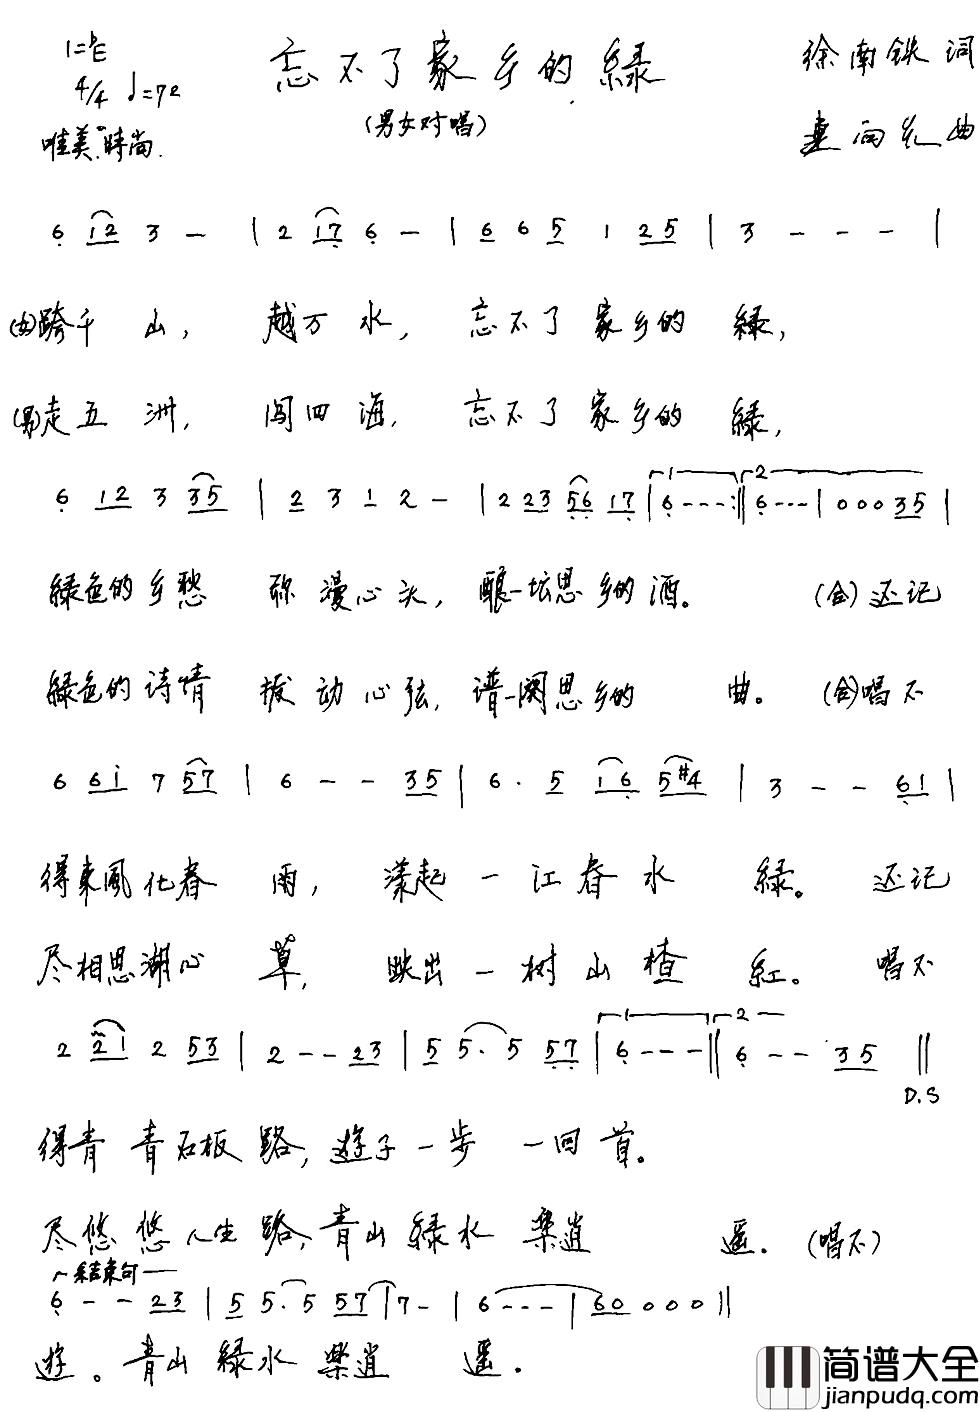 1=♭E
4/4 ♩=72
唯美.時尚.
忘不了家乡的緑
(男女对唱)
徐南铁 词
曲
6̣ 1 2 3 - | 2 1 7̣ 6̣ - | 6 6 5 1 2 5 | 3 - - - |
(女)跨千 山, 越万 水, 忘不了 家乡的 緑,
(男)走五 洲, 闯四 海, 忘不了 家乡的 緑,
6̣ 1 2 3 3 5 | 2 3 1 2 - | 2 2 3 5̣ 6̣ 1 7̣ | 6̣ - - - :‖ 6̣ - - - | 0 0 0 3 5 |
緑色的乡愁 弥漫心头, 酿一坛思乡的酒。 (合)还记
緑色的诗情 拨动心弦, 谱一阕思乡的 曲。 (合)唱不
6 6 i 7 5 7 | 6 - - 3 5 | 6 · 5 1 6̣ 5 #4 | 3 - - 6̣ 1 |
得東風化春 雨, 漾起一江春水 緑。 还记
尽相思湖心 草, 映出一树山楂 紅。 唱不
2 2 1 2 5 3 | 2 - - 2 3 | 5 5 · 5 5̣ 7̣ | 6̣ - - - ‖ 6̣ - - 3 5 ‖
D.S
得青 青石板 路, 遊子一步 一回首。
尽悠悠人生 路, 青山緑水 樂逍 遥. (唱不)
结束句
6̣ - - 2 3 | 5 5 · 5 5 7 | 7 - | 6 - - - | 6 0 0 0 0 ‖
遊。青山緑水 樂逍 遥.
简谱大全
jianpudq.com